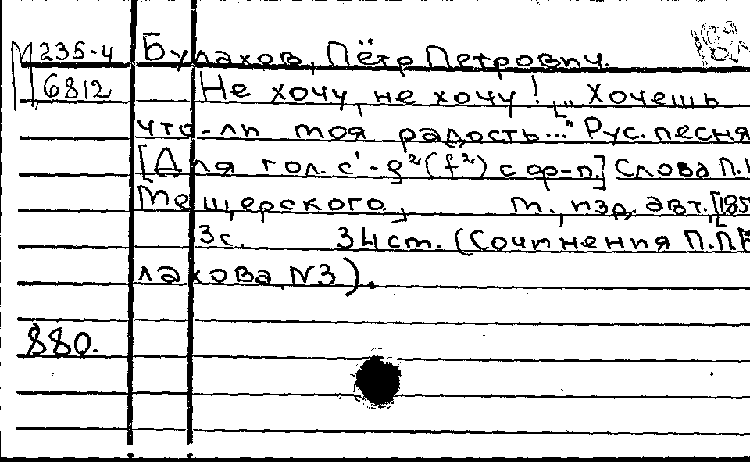 М 235-4 Булахов, Пётр Петрович.
6812 Не хочу, не хочу! „Хочешь
что-ли моя радость..." Рус. песня
[Для гол. с'-g²(f²) с ф-п.] Слова П.И
Мещерского. М., изд. авт. [185
3 с. 34 см. (Сочинения П.П.Б
лахова, N3).
880.